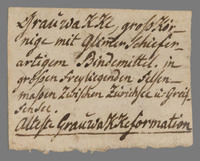 Grauwakke, grosskör-
nige mit Glimmerschiefer
artigem Bindemittel, in
grossen freyliegenden Felsen-
massen zwischen Zürichsee u. Greif-
fensee.
Älteste Grauwakkeformation